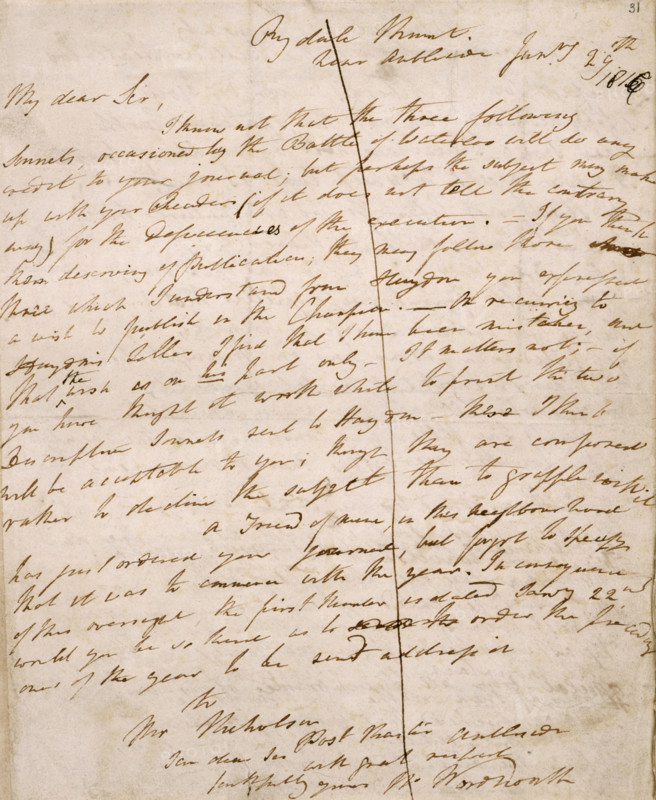 31
Rydale Mount.
near Ambleside Janry 29th
1816
My dear Sir,
I know not that the three following
Sonnets, occasioned by the Battle of Waterloo will do any
credit to your journal; but perhaps the subject may make
up with your Readers (if it does not tell the contrary
way) for the deficiencies of the execution. — If you think
them deserving of publication, they may follow those
three which I understand from Haydon you expressed
a wish to publish in the Champion. — On recurring to
Haydon's Letter I find that I have been mistaken, and
that the wish is on his part only — It matters not; — if
you have thought it worth while to print the two
Descriptive Sonnets sent to Haydon — these I think
will be acceptable to you; though they are composed
rather to decline the subject than to grapple with it
A Friend of mine, in this neighbourhood
has just ordered your journal, but forgot to specify
that it was to commence with the year. In consequence
of this oversight, the first Number is dated Janry 22nd
would you be so kind as to order the preceding
ones of the year to be sent address'd
to
Mr Nicholson
Post Master Ambleside
I am dear Sir with great respect
faithfully yours Wm Wordsworth